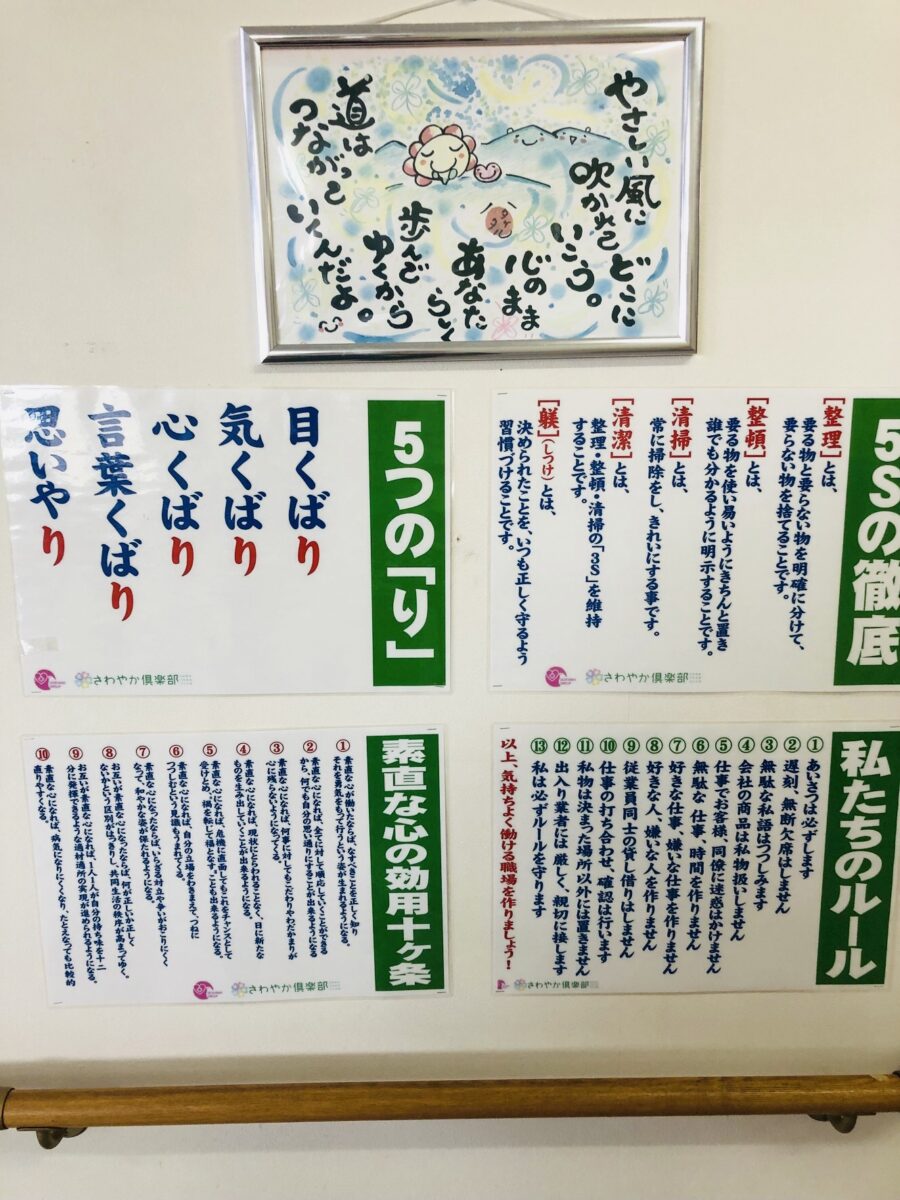 やさしい風に
吹かれて どこに
いこう。
心のまま
あなた
らしく
歩んで
ゆくから
道は
つながって
いくんだよ。
5Sの徹底
[整理]とは、
要る物と要らない物を明確に分けて、
要らない物を捨てることです。
[整頓]とは、
要る物を使い易いようにきちんと置き
誰でも分かるように明示することです。
[清掃]とは、
常に掃除をし、きれいにする事です。
[清潔]とは、
整理・整頓・清掃の「3S」を維持
することです。
[躾](しつけ)とは、
決められたことを、いつも正しく守るよう
習慣づけることです。
さわやか倶楽部
5つの「り」
目くばり
気くばり
心くばり
言葉くばり
思いやり
さわやか倶楽部
私たちのルール
①あいさつは必ずします
②遅刻、無断欠席はしません
③無駄な私語はつつしみます
④会社の商品は私物扱いしません
⑤仕事でお客様、同僚に迷惑はかけません
⑥無駄な仕事、時間を作りません
⑦好きな仕事、嫌いな仕事を作りません
⑧好きな人、嫌いな人を作りません
⑨従業員同士の貸し借りはしません
⑩仕事の打ち合わせ、確認は行います
⑪私物は決まった場所以外には置きません
⑫出入り業者には厳しく、親切に接します
⑬私は必ずルールを守ります
以上、気持ちよく働ける職場を作りましょう!
さわやか倶楽部
素直な心の効用十ヶ条
①素直な心が働いたならば、なすべきことを正しく知り
それを勇気をもって行うという姿が生まれるようになる。
②素直な心になれば、全てに対して順応していくことができる
から、何でも自分の思い通りにすることが出来るようになる
③素直な心になれば、何事に対してもこだわりやわだかまりが
心に残らないようになってくる。
④素直な心になれば、現状にとらわれることなく、日に新たな
ものを生み出していくことが出来るようになる。
⑤素直な心になれば、危機に直面してもこれをチャンスとして
受けとめ、"禍を転じて福となす"ことが出来るようになる。
⑥素直な心になれば、自分の立場をわきまえて、つねに
つつしむという見識もうまれてくる。
⑦素直な心になったならば、いらざる対立や争いがおこりにくく
なって、和やかな姿が保たれるようになる。
⑧お互いが素直な心になったならば、何が正しいか正しく
ないかという区別がはっきりし、共同生活の秩序が高まってゆく。
⑨お互いが素直な心になれば、1人1人が自分の持ち味を十二
分に発揮できるような適材適所の実現が進められるようになる。
⑩素直な心になれば、病気になりにくくなり、たとえなっても比較的
直りやすくなる。
さわやか倶楽部